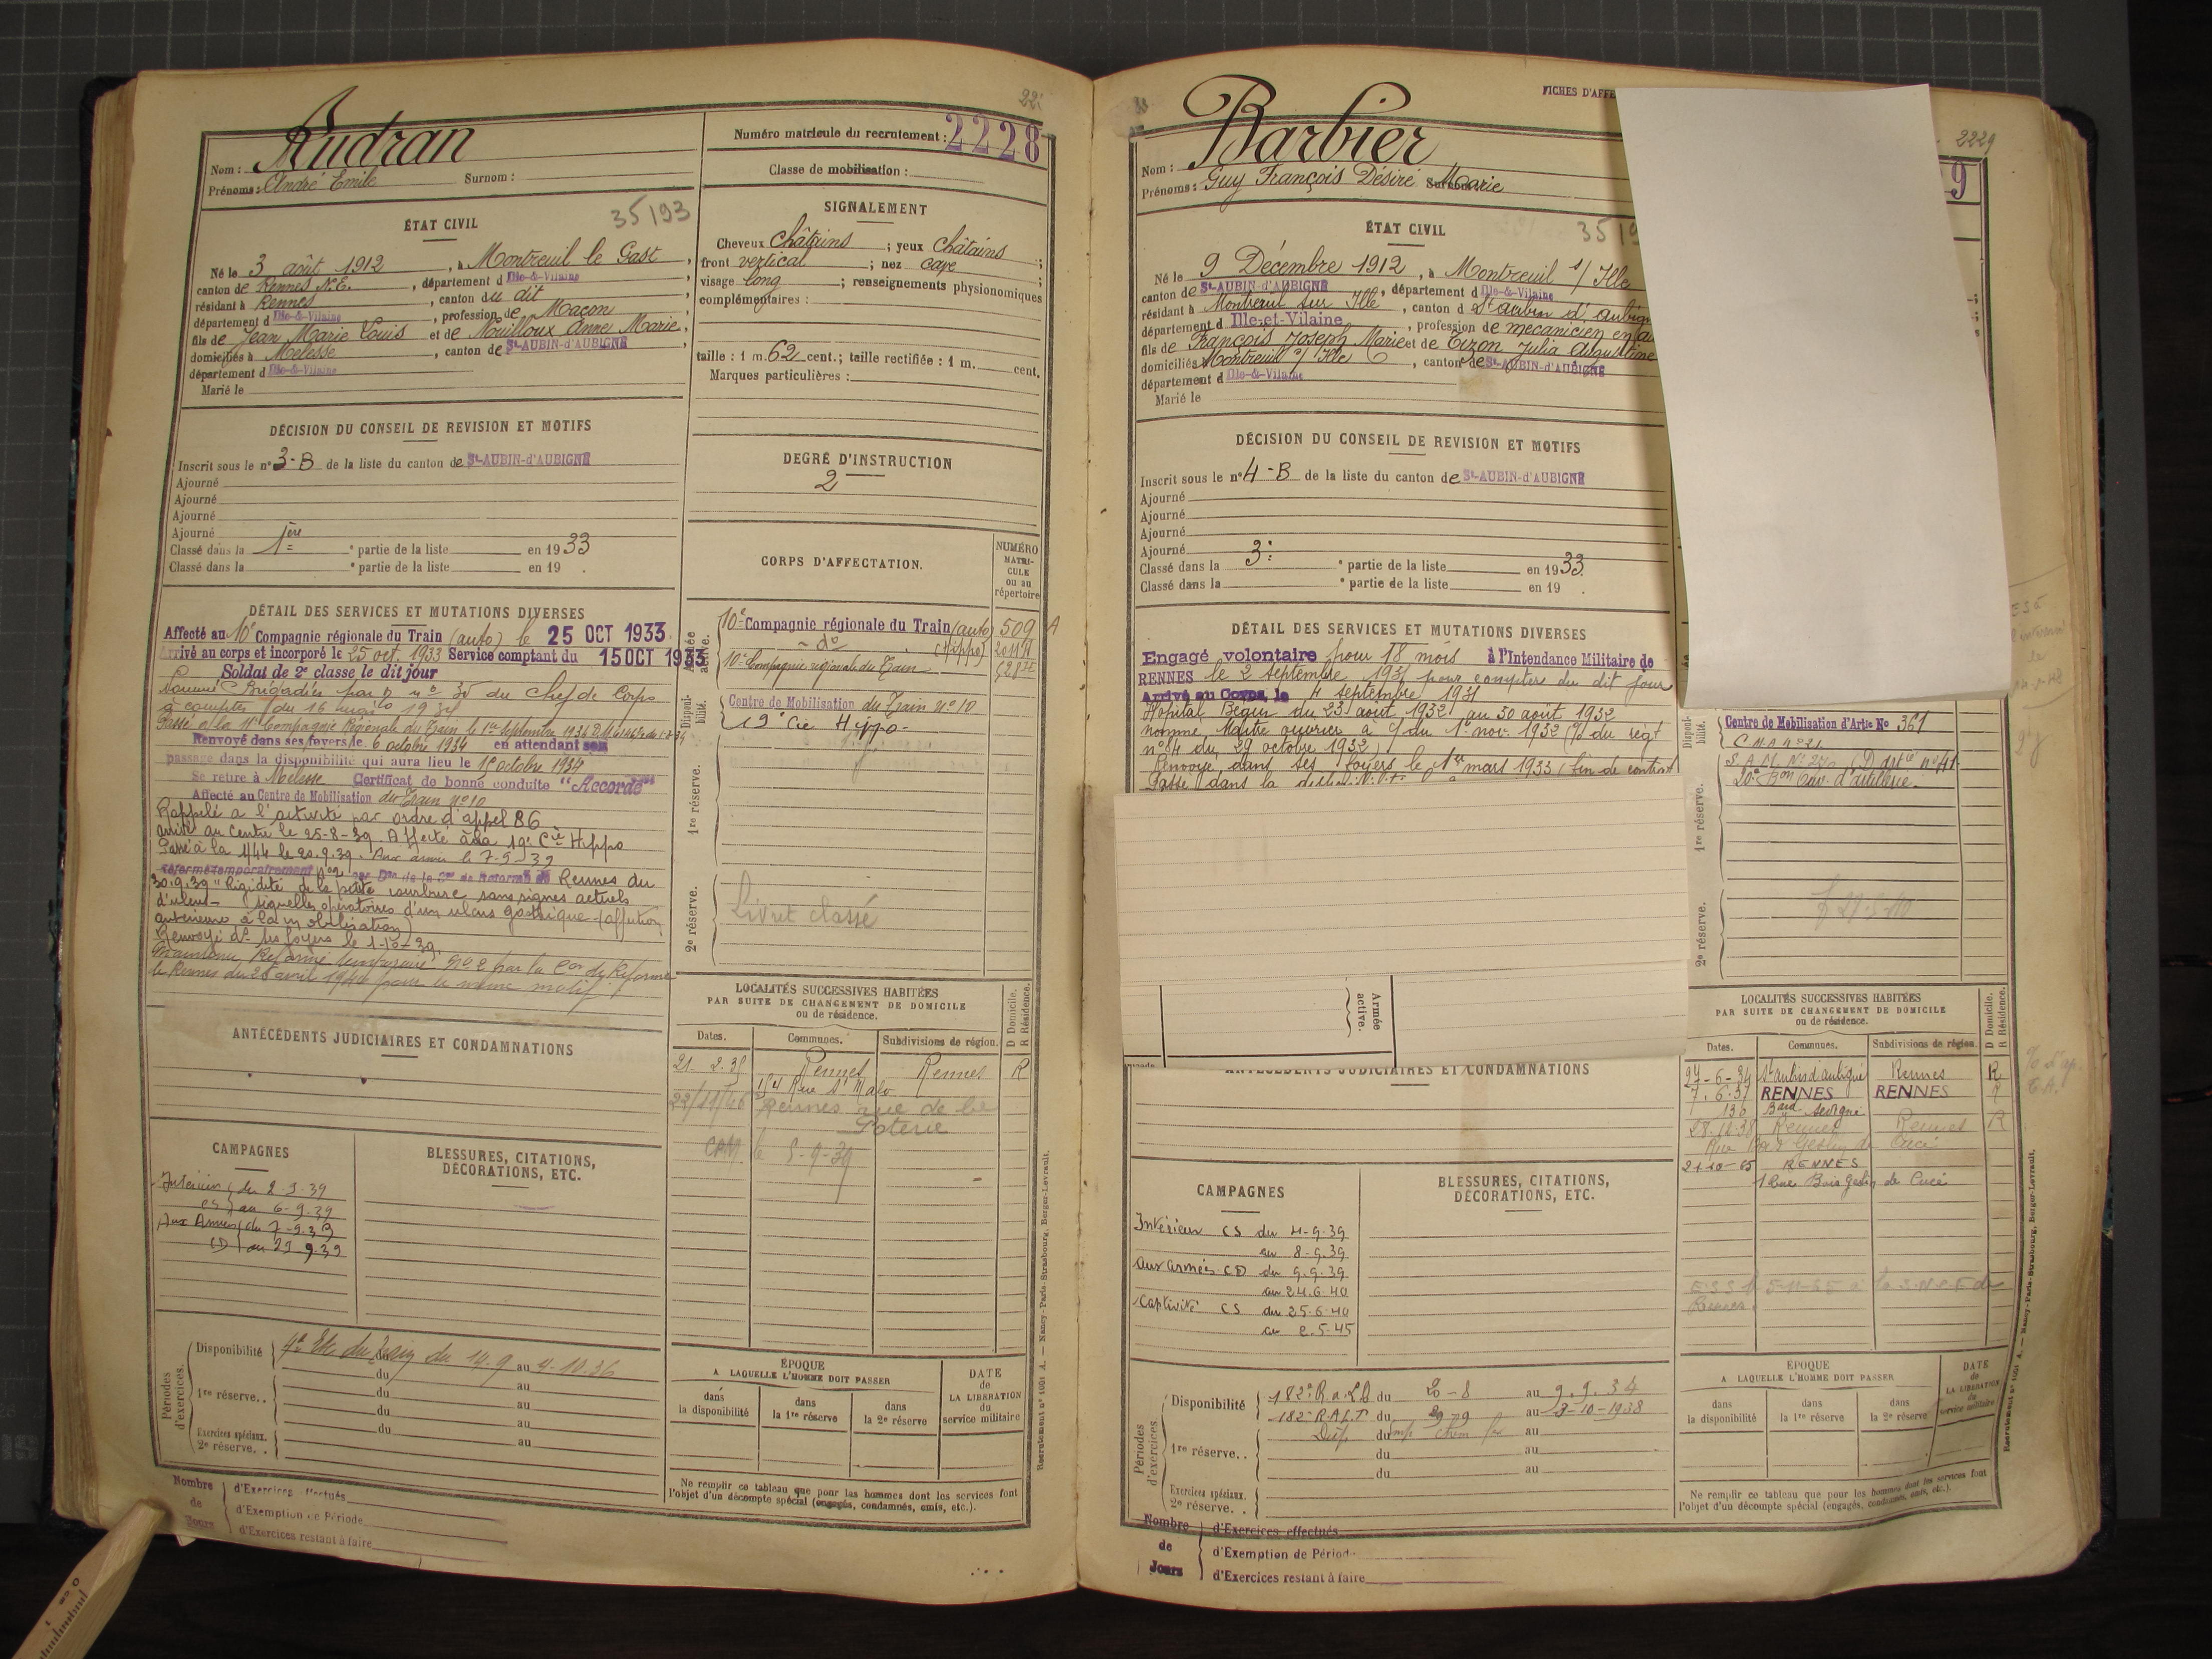 Audran
Numéro matricule du recrutement : 2228
Nom :
Prénoms : André Emile Surnom :
Classe de mobilisation :
35/93
ÉTAT CIVIL
Né le 3 août 1912, à Montreuil le Gast,
canton de Rennes N.E., département d Ille-&-Vilaine
résidant à Rennes, canton du dit
département d Ille-&-Vilaine, profession de Maçon
fils de Jean Marie Louis et de Nouilloux Anne Marie,
domiciliés à Melesse, canton de St-AUBIN-d'AUBIGNÉ
département d Ille-&-Vilaine
Marié le
SIGNALEMENT
Cheveux châtains ; yeux châtains ;
front vertical ; nez cave ;
visage long ; renseignements physionomiques
complémentaires :
taille : 1 m. 62 cent.; taille rectifiée : 1 m. cent.
Marques particulières :
DÉCISION DU CONSEIL DE REVISION ET MOTIFS
Inscrit sous le n° 3-B de la liste du canton de St-AUBIN-d'AUBIGNÉ
Ajourné
Ajourné
Ajourné
Ajourné
Classé dans la 1ère ° partie de la liste en 1933
Classé dans la ° partie de la liste en 19 .
DEGRÉ D'INSTRUCTION
2
DÉTAIL DES SERVICES ET MUTATIONS DIVERSES
Affecté au 10e Compagnie régionale du Train (auto) le 25 OCT 1933.
Arrivé au corps et incorporé le 25 oct. 1933 Service comptant du 15 OCT 1933
Soldat de 2e classe le dit jour
Nommé Brigadier par O n° 35 du chef de Corps
à compter du 16 1934
Passé à la 11e Compagnie Régionale du Train le 1er septembre 1934
Renvoyé dans ses foyers le 6 octobre 1934 en attendant son
passage dans la disponibilité qui aura lieu le 15 octobre 1934
Se retire à Melesse Certificat de bonne conduite "Accordé"
Affecté au Centre de Mobilisation du Train n° 10
Rappelé à l'activité par ordre d'appel 86
arrivé au Centre le 25-8-39. Affecté à la 19e Cie Hippo
Passé à la 1/44 le 20.9.39. Aux armées le 7-9-39
Réformé temporairement n°2 par Don de la Con de Réforme de Rennes du
30.9.39 "Rigidité de la petite courbure sans signes actuels
d'ulcus - séquelles opératoires d'un ulcus gastrique (affection
antérieure à la mobilisation)
Renvoyé ds ses foyers le 1-10-39.
Maintenu Réformé temporaire n° 2 par la Con de Réforme
de Rennes du 28 avril 1940 pour le même motif
CORPS D'AFFECTATION.
NUMÉRO
MATRI-
CULE
ou au
répertoire
Armée active.
10e Compagnie régionale du Train (auto) 509 A
- do - (hippo)
10e Compagnie régionale du Train
Disponibilité.
Centre de Mobilisation du Train n° 10
19e Cie Hippo-
1re réserve.
2e réserve.
Livret classé
ANTÉCÉDENTS JUDICIAIRES ET CONDAMNATIONS
LOCALITÉS SUCCESSIVES HABITÉES
PAR SUITE DE CHANGEMENT DE DOMICILE
ou de résidence.
D Domicile.
R Résidence.
Dates. Communes. Subdivisions de région.
21. 2.35 Rennes Rennes R
154 Rue St Malo
22/11/40 Rennes rue de la
Poterie
CAM le 5-9-39
CAMPAGNES
Intérieur du 2-9-39
CS au 6-9-39
Aux Armées du 7-9.39
CD au 29 9.39
BLESSURES, CITATIONS,
DÉCORATIONS, ETC.
Périodes d'exercices.
Disponibilité 4e Ec du Train du 14.9 au 4.10.36
du au
1re réserve. . du au
du au
Exercices spéciaux. du au
2e réserve. .
ÉPOQUE
A LAQUELLE L'HOMME DOIT PASSER
dans
la disponibilité
dans
la 1re réserve
dans
la 2e réserve
DATE
de
LA LIBÉRATION
du
service militaire
Ne remplir ce tableau que pour les hommes dont les services font
l'objet d'un décompte spécial (engagés, condamnés, omis, etc.).
Nombre de Jours
d'Exercices effectués
d'Exemption de Période
d'Exercices restant à faire
Recrutement n° 1001 A. — Nancy-Paris-Strasbourg, Berger-Levrault.
FICHES D'AFFE
2229
Barbier
9
Nom :
Prénoms : Guy François Désiré Surnom : Marie
ÉTAT CIVIL
Né le 9 Décembre 1912, à Montreuil s/ Ille
canton de St-AUBIN-d'AUBIGNÉ, département d Ille-&-Vilaine
résidant à Montreuil sur Ille, canton d St aubin d'aubign
département d Ille-et-Vilaine, profession de mécanicien en au
fils de François Joseph Marie et de Tizon Julia Augustine
domiciliés à Montreuil s/ Ille, canton de St-AUBIN-d'AUBIGNÉ
département d Ille-&-Vilaine
Marié le
DÉCISION DU CONSEIL DE REVISION ET MOTIFS
Inscrit sous le n° 4-B de la liste du canton de St-AUBIN-d'AUBIGNÉ
Ajourné
Ajourné
Ajourné
Ajourné
Classé dans la 3e ° partie de la liste en 1933.
Classé dans la ° partie de la liste en 19 .
DÉTAIL DES SERVICES ET MUTATIONS DIVERSES
Engagé volontaire pour 18 mois à l'Intendance Militaire de
RENNES le 2 septembre 1931 pour compter du dit jour
Arrivé au Corps, le 4 septembre 1931
Hôpital Bégin du 23 août 1932 au 30 août 1932
nommé Maître ouvrier à c/ du 1er nov. 1932 (O du régt
n° 84 du 29 octobre 1932)
Renvoyé dans ses foyers le 1er mars 1933 (fin de contrat
Passé dans la
Disponibilité.
Centre de Mobilisation d'Artie No 361
C M A n° 21
20e Bon Ouv. d'artillerie.
1re réserve.
2e réserve.
Armée
active.
ANTÉCÉDENTS JUDICIAIRES ET CONDAMNATIONS
LOCALITÉS SUCCESSIVES HABITÉES
PAR SUITE DE CHANGEMENT DE DOMICILE
ou de résidence.
D Domicile.
R Résidence.
Dates. Communes. Subdivisions de région.
27-6-34 St aubin d'aubigné Rennes R
7.6.37 RENNES RENNES R
136 Bard Sévigné
28.12.38 Rennes Rennes R
Rue Bois Geslin de Cucé
21-10-45 RENNES
1 Rue Bois Geslin de Cucé
à la S.N.C.F de
Rennes.
CAMPAGNES
Intérieur CS du 4-9-39
au 8-9.39
aux armées CD du 9.9.39
au 24.6-40
Captivité CS du 25-6-40
au 2.5-45
BLESSURES, CITATIONS,
DÉCORATIONS, ETC.
Périodes d'exercices.
Disponibilité 182e R.a.L.D du 20-8 au 9.9.34
182e R.A.L.T du 29-9 au 3-10-1938
du au
1re réserve. . du au
du au
Exercices spéciaux.
2e réserve. .
ÉPOQUE
A LAQUELLE L'HOMME DOIT PASSER
dans
la disponibilité
dans
la 1re réserve
dans
la 2e réserve
DATE
de
LA LIBÉRATION
du
service militaire
Ne remplir ce tableau que pour les hommes dont les services font
l'objet d'un décompte spécial (engagés, condamnés, omis, etc.).
Nombre
de
Jours
d'Exercices effectués
d'Exemption de Période
d'Exercices restant à faire
Recrutement n° 1001 A. — Nancy-Paris-Strasbourg, Berger-Levrault.